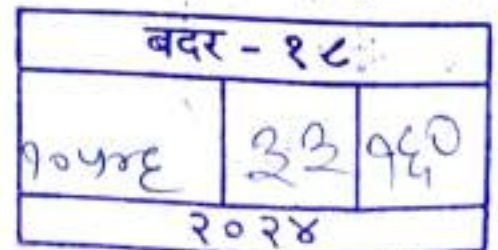 बदर - १८
१०५४६ ३३ १६०
२०२४